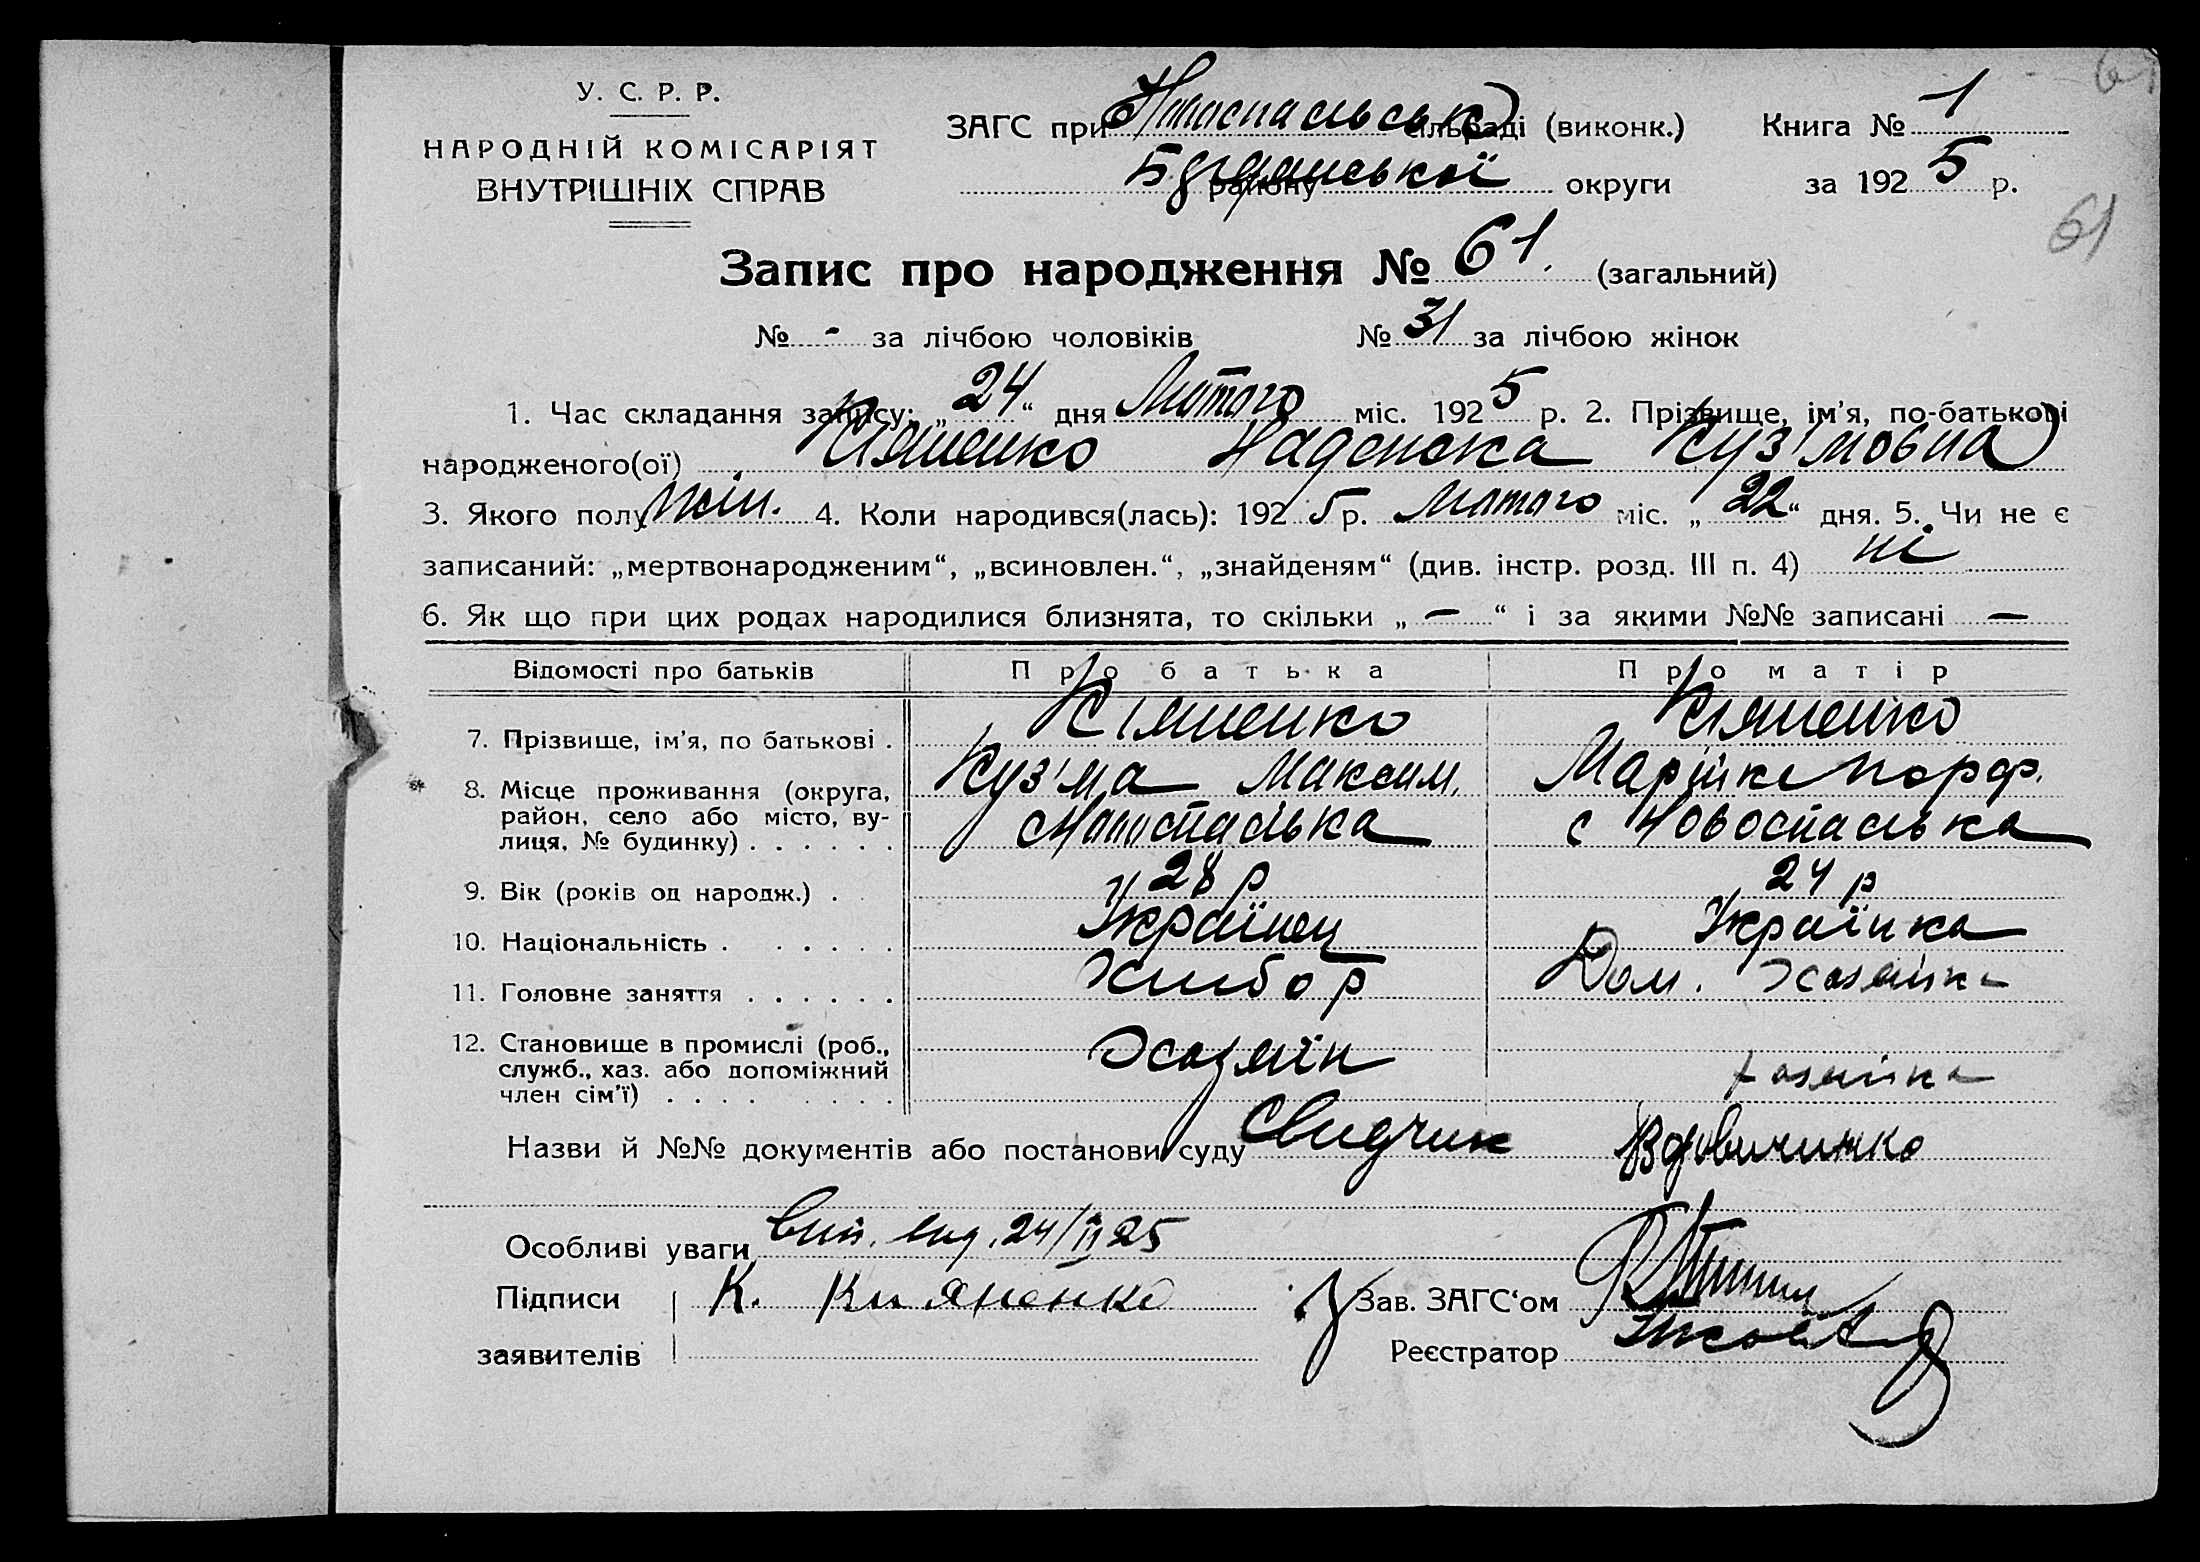 У. С. Р. Р.
НАРОДНІЙ КОМІСАРІЯТ
ВНУТРІШНІХ СПРАВ
ЗАГС при Новоспаській сільраді (виконк.) Книга № 1
району округи за 1925 р.
61
Запис про народження № 61. (загальний)
№ - за лічбою чоловіків № 31 за лічбою жінок
1. Час складання запису: „24“ дня Лютого міс. 1925 р. 2. Прізвище, ім'я, по-батькові
народженого(ої) Кіяненко Надежка Куз'мовна
3. Якого полу жін. 4. Коли народився(лась): 1925 р. Лютого міс. „22“ дня. 5. Чи не є
записаний: „мертвонародженим“, „всиновлен.“, „знайденям“ (див. інстр. розд. III п. 4) ні
6. Як що при цих родах народилися близнята, то скільки „—“ і за якими №№ записані —
Відомості про батьків Про батька Про матір
7. Прізвище, ім'я, по батькові . Кіяненко Кіяненко
Куз'ма Максим. Марійка Порф.
8. Місце проживання (округа,
район, село або місто, ву-
лиця, № будинку) . . . . . . с Новоспаська с Новоспаська
9. Вік (років од народж.) . 28 р 24 р
10. Національність . . . . . . Українец Українка
11. Головне заняття . . . . . . Хлібор Дом. хазяйка
12. Становище в промислі (роб.,
служб., хаз. або допоміжний
член сім'ї) . . . . . . . . Хазяїн хазяйка
Назви й №№ документів або постанови суду Свидчик
Особливі уваги 24/II 25
Підписи К. Кияненко Зав. ЗАГС'ом
заявителів Реєстратор